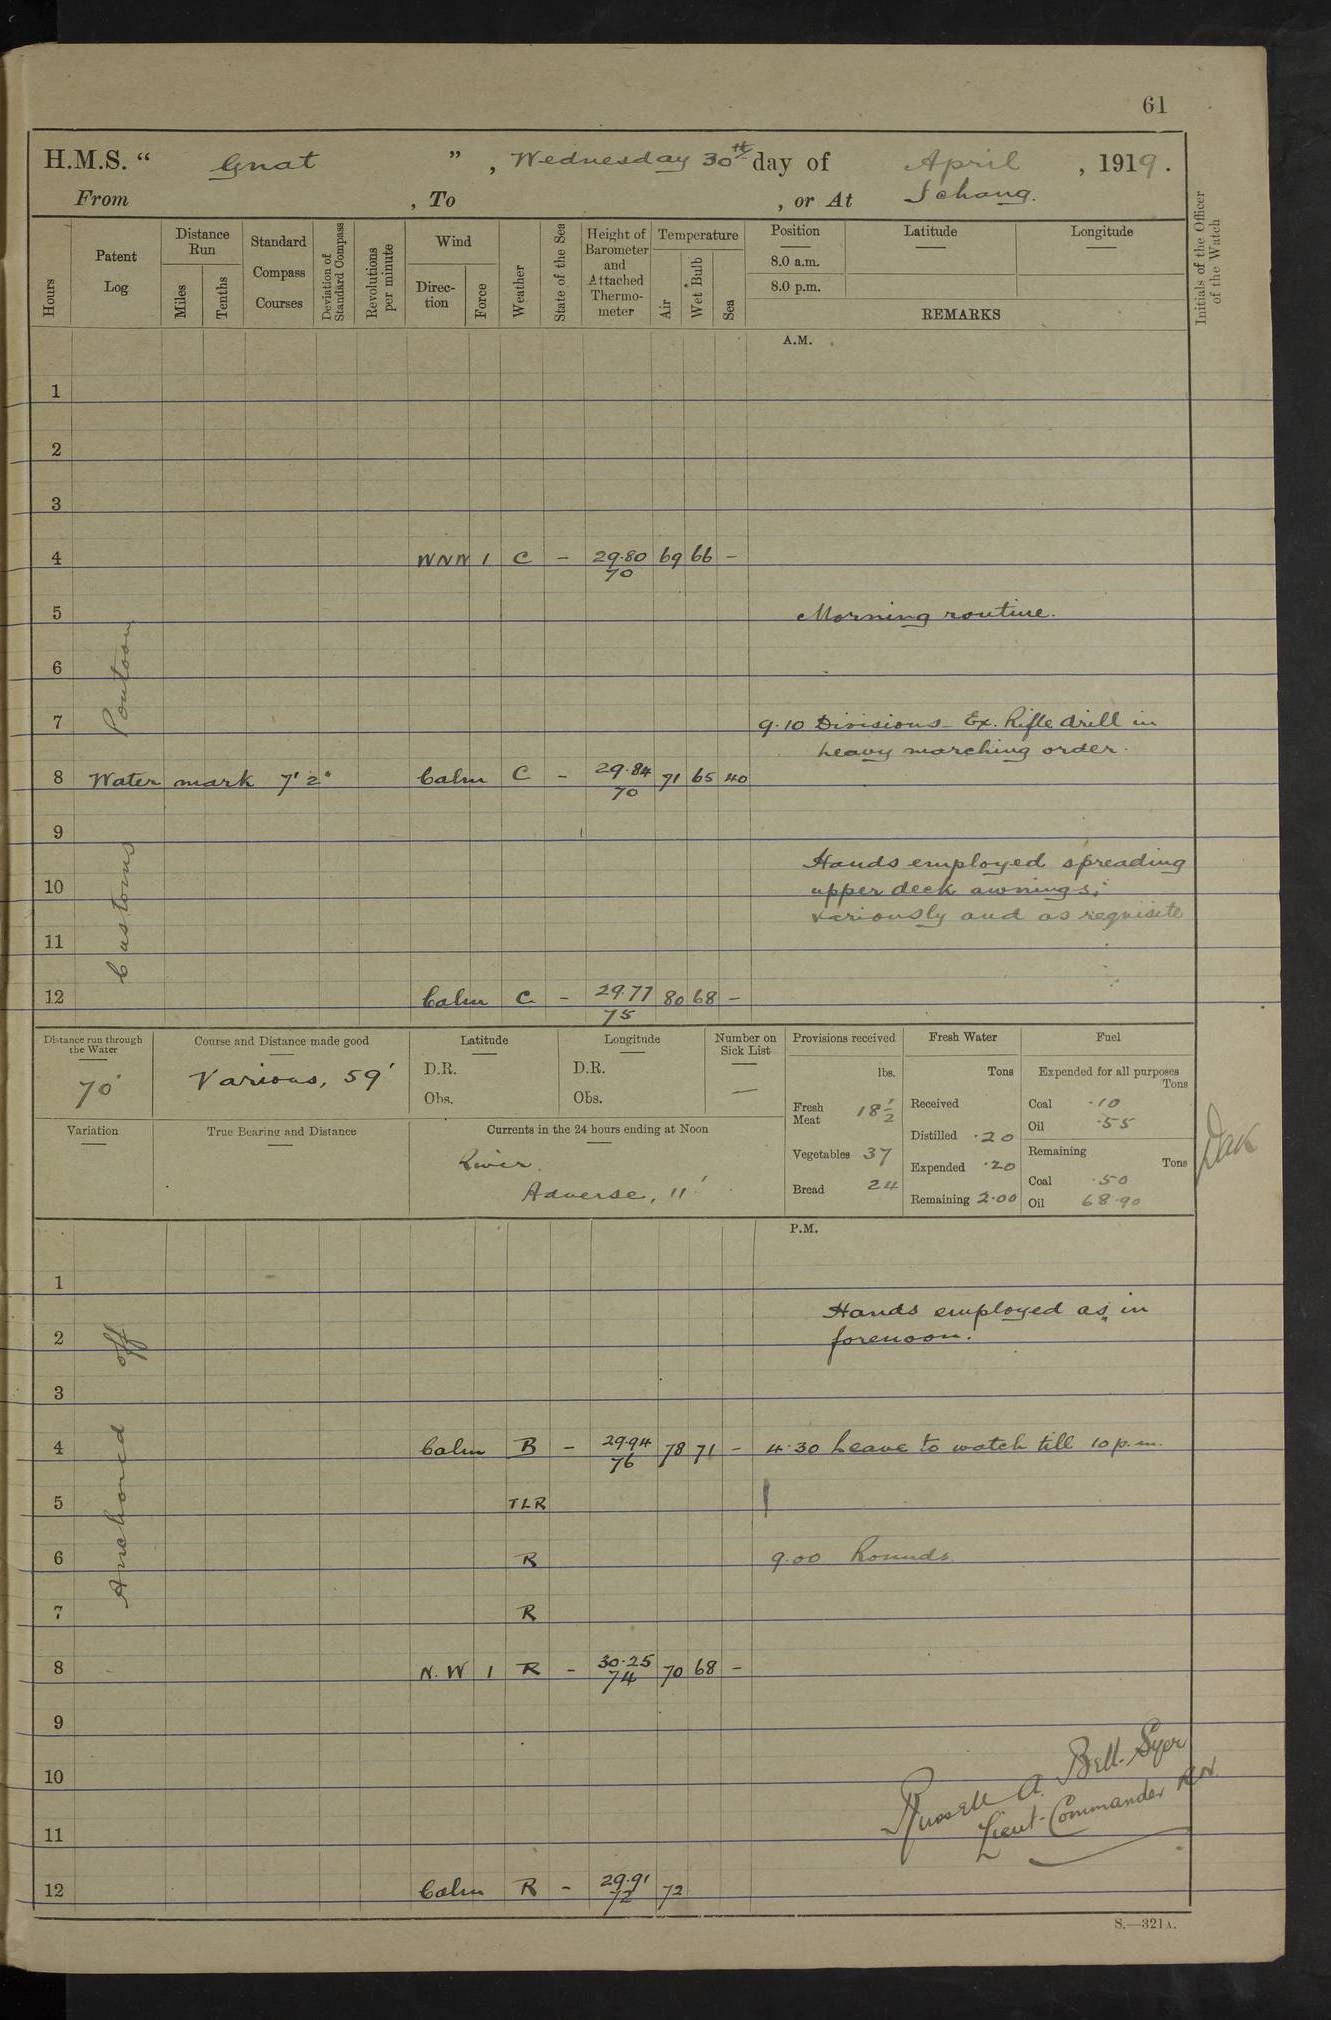 61
H.M.S. “ Gnat ” , Wednesday 30th day of April , 1919 .
From , To , or At Ichang.
Hours
Patent Log
Distance Run
Miles
Tenths
Standard Compass Courses
Deviation of Standard Compass
Revolutions per minute
Wind
Direc-tion
Force
Weather
State of the Sea
Height of Barometer and Attached Thermo-meter
Temperature
Air
Wet Bulb
Sea
Position
8.0 a.m.
8.0 p.m.
Latitude
Longitude
REMARKS
Initials of the Officer of the Watch
A.M.
1
2
3
4 WNW 1 C - 29.80 69 66 -
70
5 Morning routine.
6
7 9.10 Divisions - Ex. Rifle drill in
heavy marching order.
8 Water mark 7' 2" Calm C - 29.84 71 65 40
70
9
Hands employed spreading
10 upper deck awnings;
variously and as requisite
11
12 Calm C - 29.77 80 68 -
75
Anchored off Customs Pontoon
Distance run through the Water
70'
Course and Distance made good
Various, 59'
Latitude
D.R.
Obs.
Longitude
D.R.
Obs.
Number on Sick List
-
Variation
True Bearing and Distance
Currents in the 24 hours ending at Noon
River.
Adverse, 11'
Provisions received
lbs.
Fresh Meat 18 1/2
Vegetables 37
Bread 24
Fresh Water
Tons
Received
Distilled .20
Expended .20
Remaining 2.00
Fuel
Expended for all purposes
Tons
Coal .10
Oil .55
Remaining
Tons
Coal .50
Oil 68.90
P.M.
1
Hands employed as in
2 forenoon.
3
4 Calm B - 29.94 78 71 - 4.30 Leave to watch till 10 p.m.
76
5 TLR
6 R 9.00 Rounds
7 R
8 N.W 1 R - 30.25 70 68 -
74
9
10
11
12 Calm R - 29.91 72
72
Russell A. Bell-Syer
Lieut-Commander RN.
S.—321A.